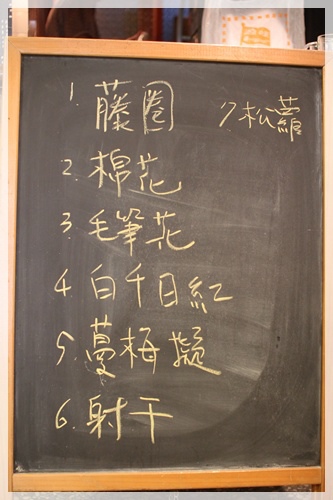 1. 藤圈
2. 棉花
3. 毛筆花
4. 白千日紅
5. 蔓梅擬
6. 射干
7. 松蘿